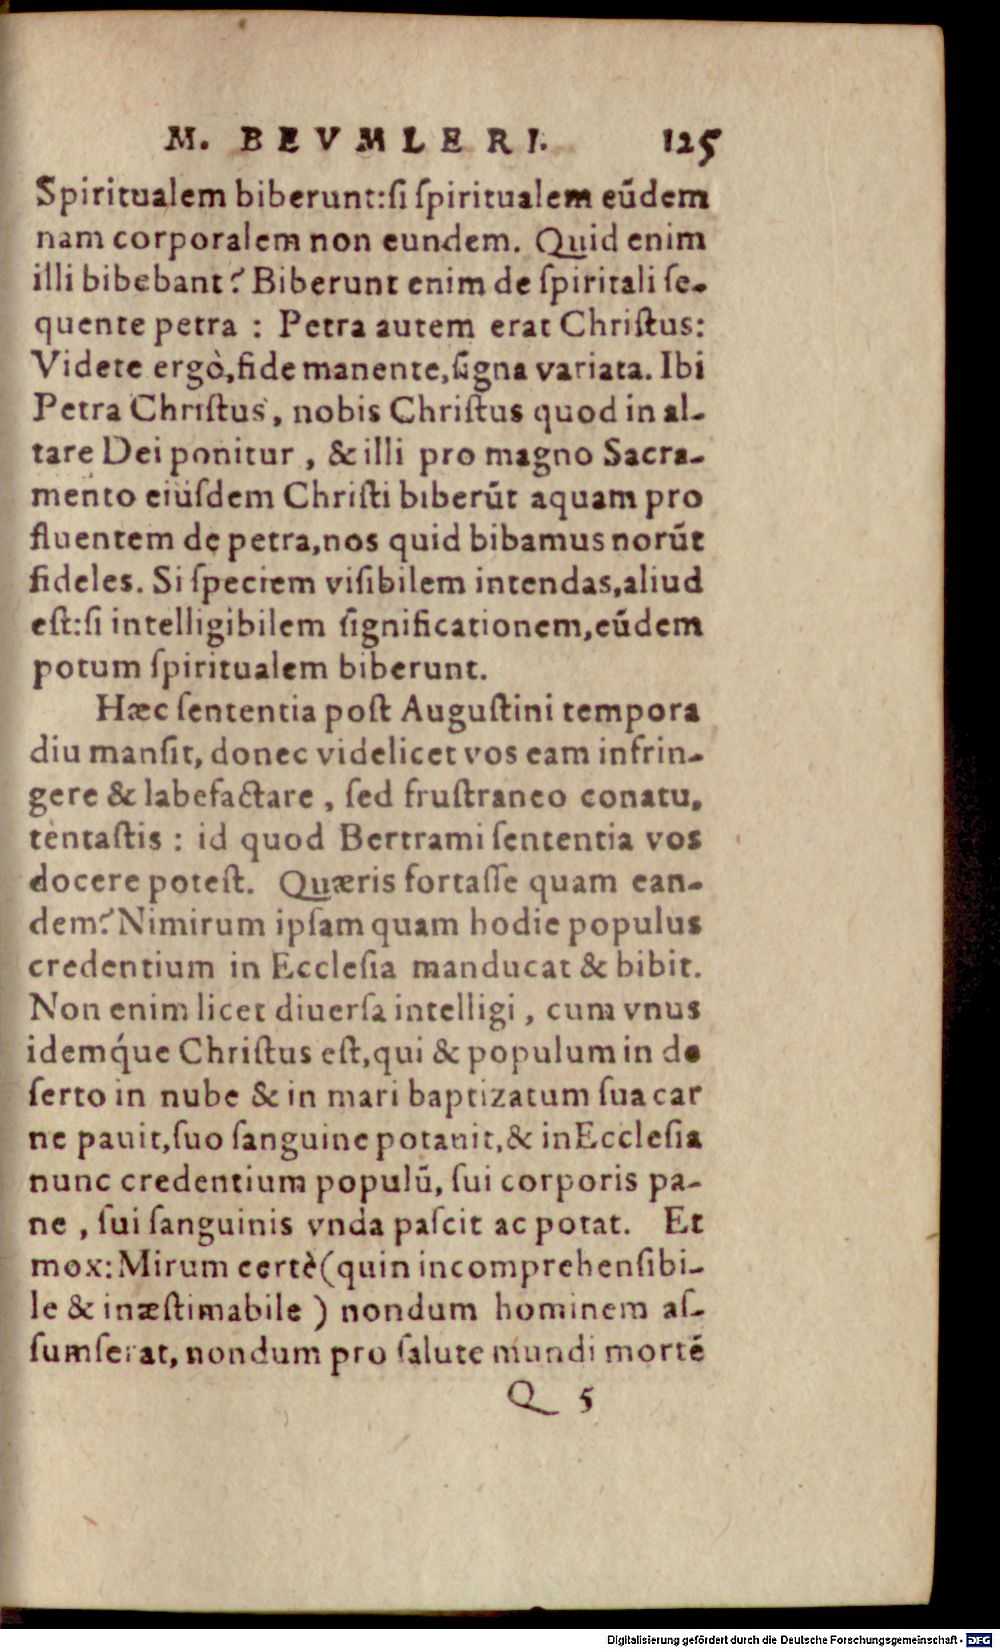 M. BEVMLERI. 125
Spiritualem biberunt:ſi ſpiritualem eūdem
nam corporalem non eundem. Quid enim
illi bibebant? Biberunt enim de ſpiritali ſe-
quente petra : Petra autem erat Chriſtus:
Videte ergò,fide manente,ſigna variata. Ibi
Petra Chriſtus, nobis Chriſtus quod in al-
tare Dei ponitur , & illi pro magno Sacra-
mento eiuſdem Chriſti biberūt aquam pro
fluentem de petra,nos quid bibamus norūt
fideles. Si ſpeciem viſibilem intendas,aliud
eſt:ſi intelligibilem ſignificationem,eūdem
potum ſpiritualem biberunt.
Hæc ſententia poſt Auguſtini tempora
diu manſit, donec videlicet vos eam infrin-
gere & labefactare , ſed fruſtraneo conatu,
tentaſtis : id quod Bertrami ſententia vos
docere poteſt. Quæris fortaſſe quam ean-
dem? Nimirum ipſam quam hodie populus
credentium in Eccleſia manducat & bibit.
Non enim licet diuerſa intelligi , cum vnus
idemq́ue Chriſtus eſt,qui & populum in de
ſerto in nube & in mari baptizatum ſua car
ne pauit,ſuo ſanguine potauit,& in Eccleſia
nunc credentium populū, ſui corporis pa-
ne , ſui ſanguinis vnda paſcit ac potat. Et
mox: Mirum certè(quin incomprehenſibi-
le & inæſtimabile ) nondum hominem aſ-
ſumſerat, nondum pro ſalute mundi mortē
Q 5
Digitalisierung gefördert durch die Deutsche Forschungsgemeinschaft - DFG